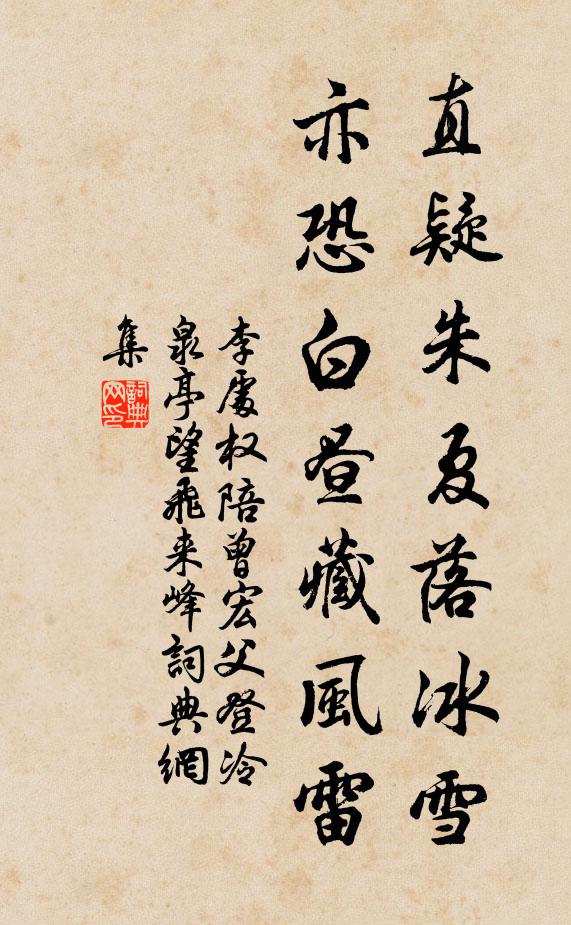 直疑朱夏落冰雪
亦恐白昼藏風雷
李處权陪曾宏父登冷
泉亭望飛来峰詞典網
集
詞典
网印